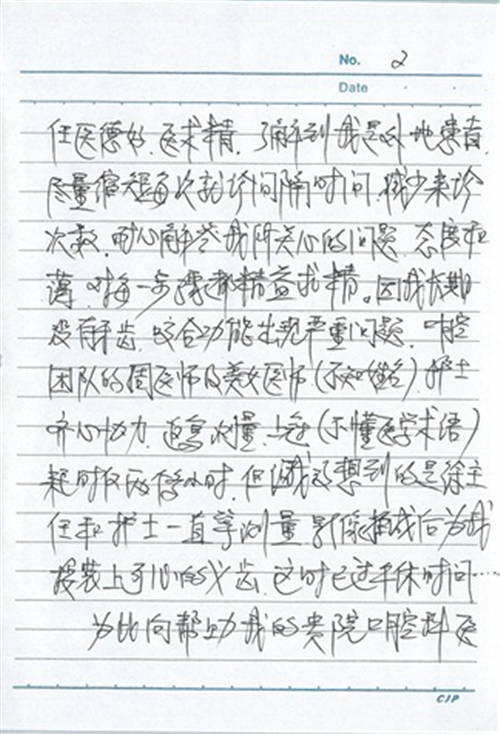 No. 2
Date
任医德好、医术精。了解到我是外地患者
尽量缩短每次就诊间隔时间,减少来诊
次数,耐心解答我所关心的问题,态度和
蔼,对每一步骤都精益求精。因我长期
没有牙齿,咬合功能出现严重问题,口腔
团队的周医师及美女医师(不知姓名)、护士
齐心协力,反复测量、上(不懂医学术语)
耗时仅两个小时,但让我没想到的是徐主
任和护士一直等测量影像插成后为我
按装上了的义齿,这时已过午休时间……
为此向帮助我的贵院口腔科医
CJP